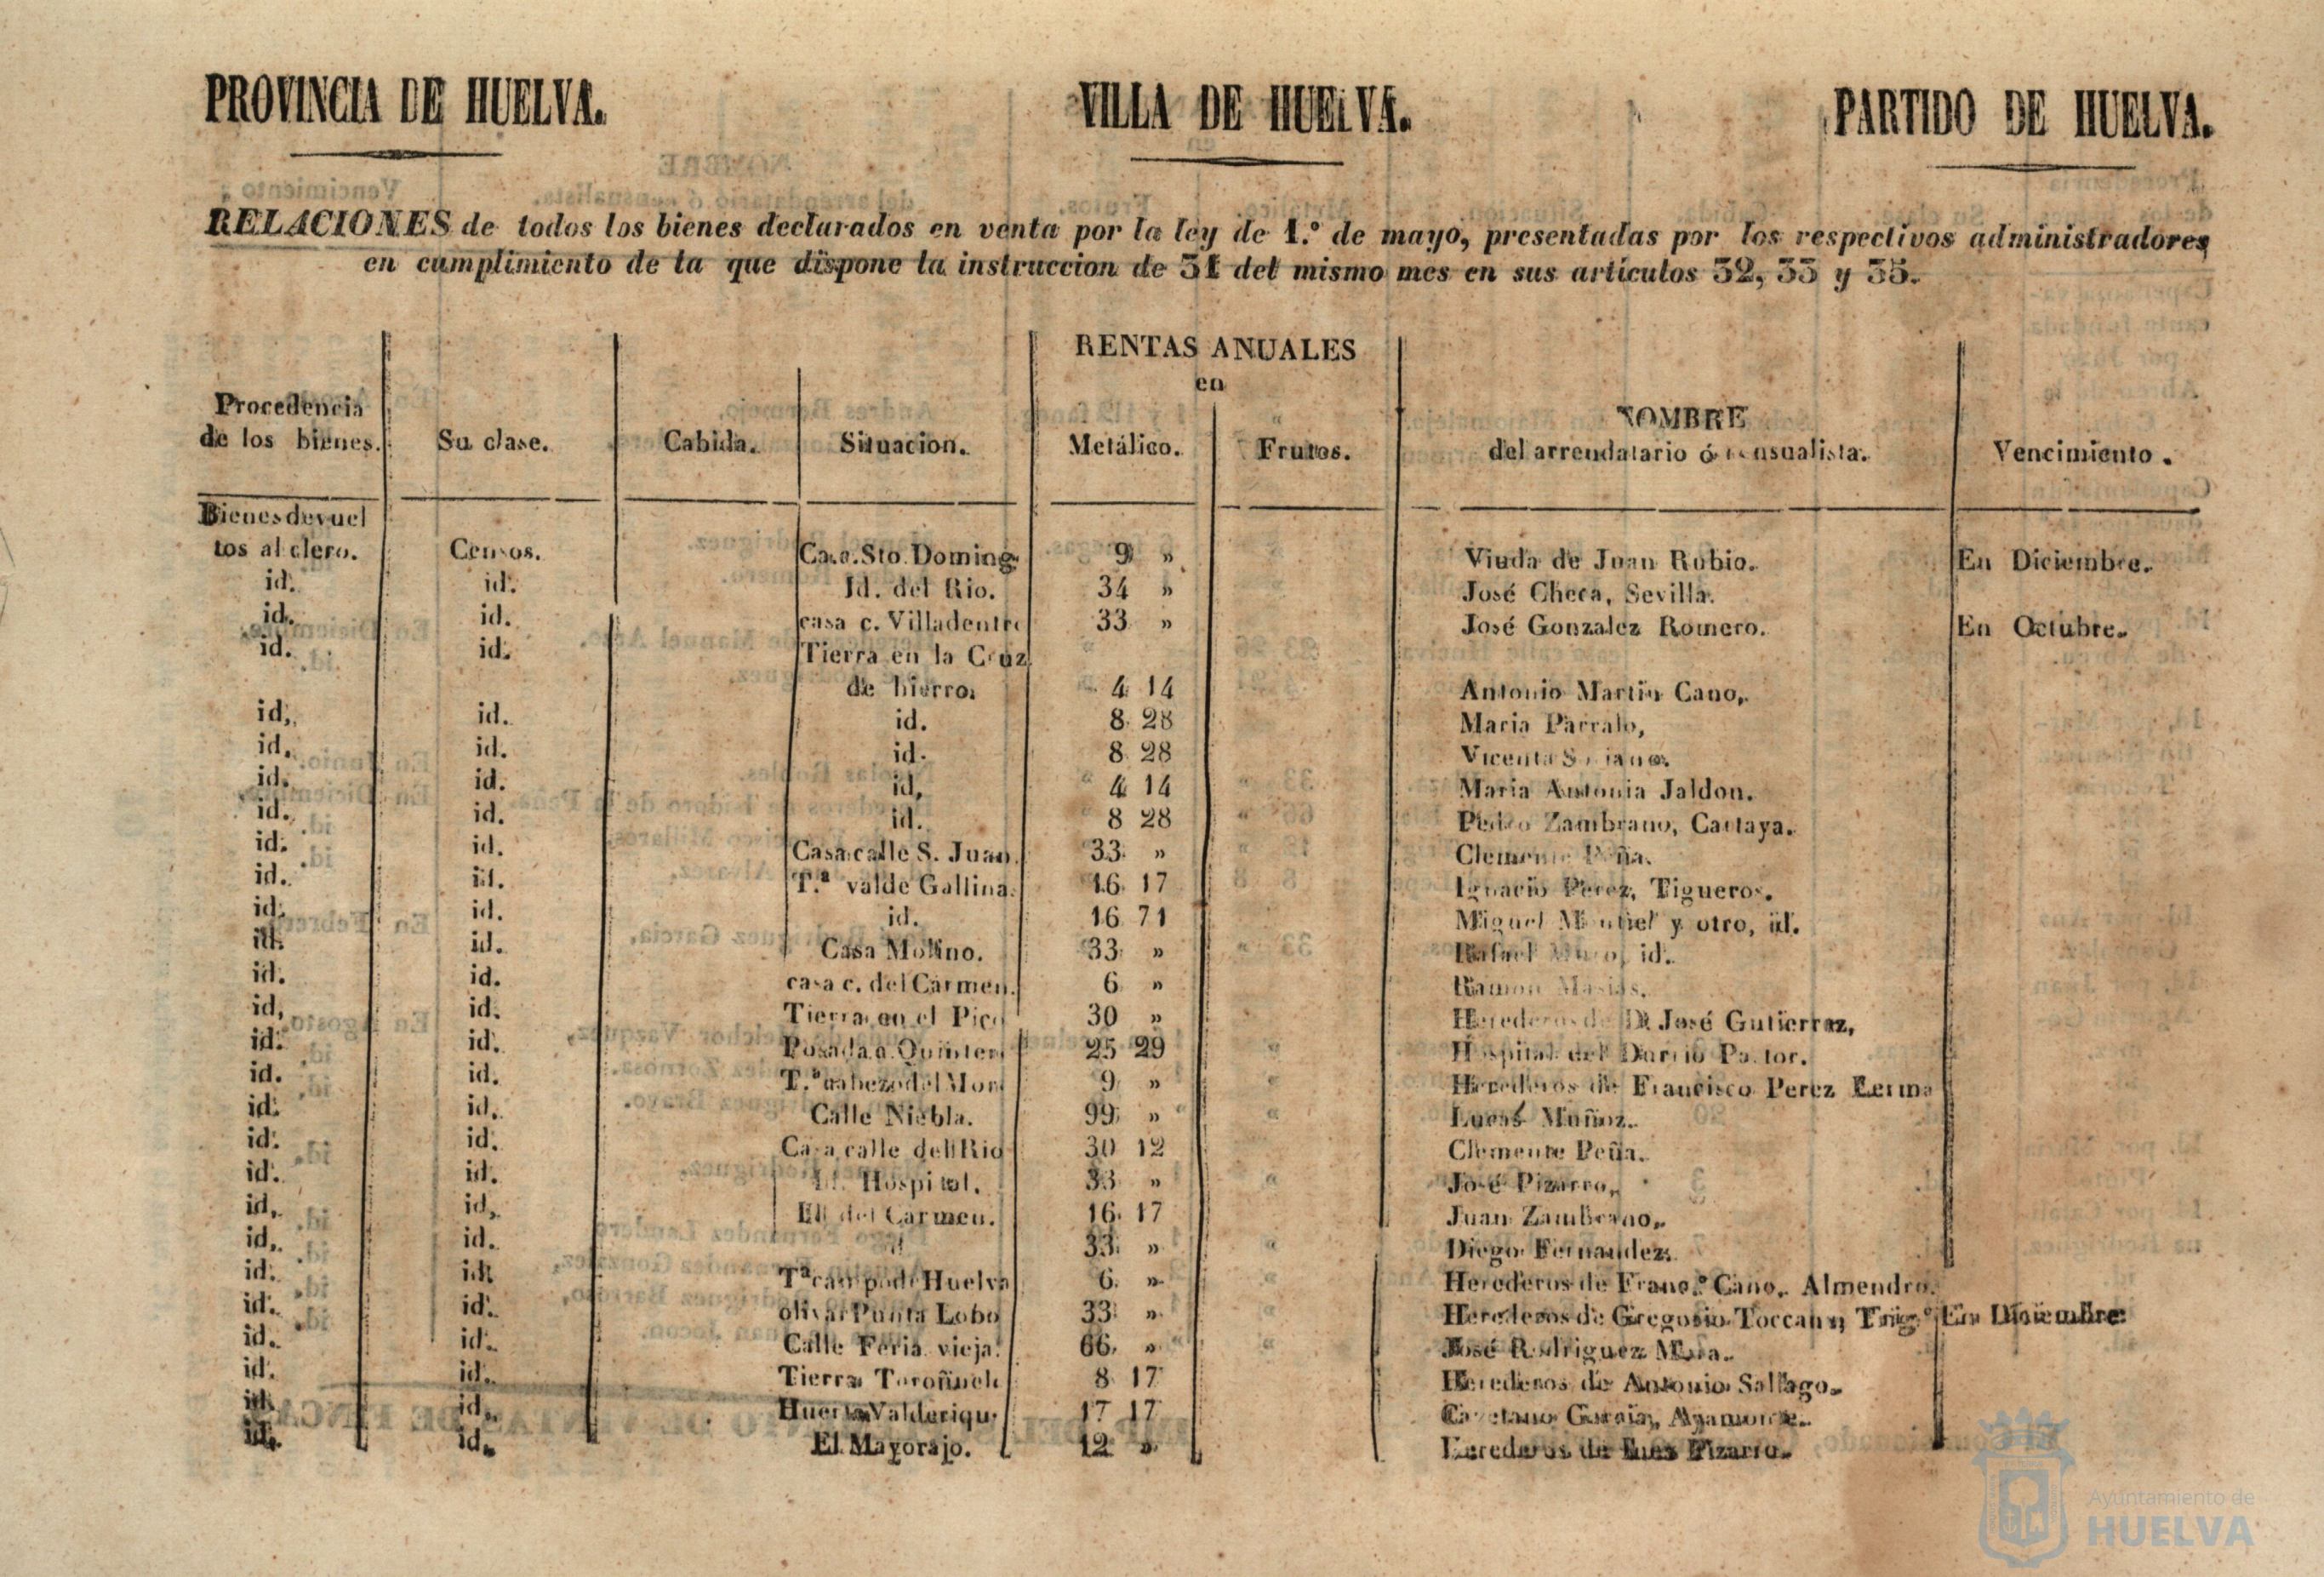 PROVINCIA DE HUELVA. VILLA DE HUELVA. PARTIDO DE HUELVA.
RELACIONES de todos los bienes declarados en venta por la ley de 1.º de mayo, presentadas por los respectivos administradores
en cumplimiento de la que dispone la instruccion de 31 del mismo mes en sus artículos 32, 33 y 35.
RENTAS ANUALES
en
Procedencia NOMBRE
de los bienes. Su clase. Cabida. Situacion. Metálico. Frutos. del arrendatario ó censualista. Vencimiento.
Bienes devuel
tos al clero. Censos. Casa. Sto. Doming. 9 » Viuda de Juan Rubio. En Diciembre.
id. id. Id. del Rio. 34 » José Checa, Sevilla.
id. id. casa c. Villadentro 33 » José Gonzalez Romero. En Octubre.
id. id. Tierra en la Cruz
de hierro. 4 14 Antonio Martin Cano,
id, id. id. 8 28 Maria Parralo,
id. id. id. 8 28 Vicenta
id. id. id, 4 14 Maria Antonia Jaldon.
id. id. id. 8 28 Pedro Zambrano, Cartaya.
id. id. Casa calle S. Juan. 33 » Clemente Peña.
id. id. T.ª valde Gallina. 16 17 Ignacio Perez, Tigueros.
id. id. id. 16 71 Miguel Montiel y otro, id.
id. id. Casa Molino. 33 » Rafael id.
id. id. casa c. del Carmen. 6 » Ramon Masias.
id, id. Tierra en el Pico 30 » Herederos de D. José Gutierrez,
id. id. Posada a. Quintero 25 29 Hospital del Pastor.
id. id. T.ª cabezo del Mon 9 » Herederos de Francisco Perez Lerma
id. id. Calle Niebla. 99 » Lucas Muñoz.
id. id. Casa calle del Rio 30 12 Clemente Peña.
id. id. Id. Hospital. 33 » José Pizarro,
id, id, Id. del Carmen. 16 17 Juan Zambrano,
id. id. 33 » Diego Fernandez.
id. id. T.ª campo de Huelva 6 » Herederos de Franc.º Cano, Almendro.
id. id. olivar Punta Lobo 33 » Herederos de Gregorio Trig.º En Diciembre
id. id. Calle Feria vieja. 66 » José Rodriguez Mora.
id. id. Tierra 8 17 Herederos de Antonio Sallago.
id. id. Huerta 17 17 Cayetano Garcia, Ayamonte.
id. id. El Mayorajo. 12 » Herederos de Pizarro.
Ayuntamiento de
HUELVA